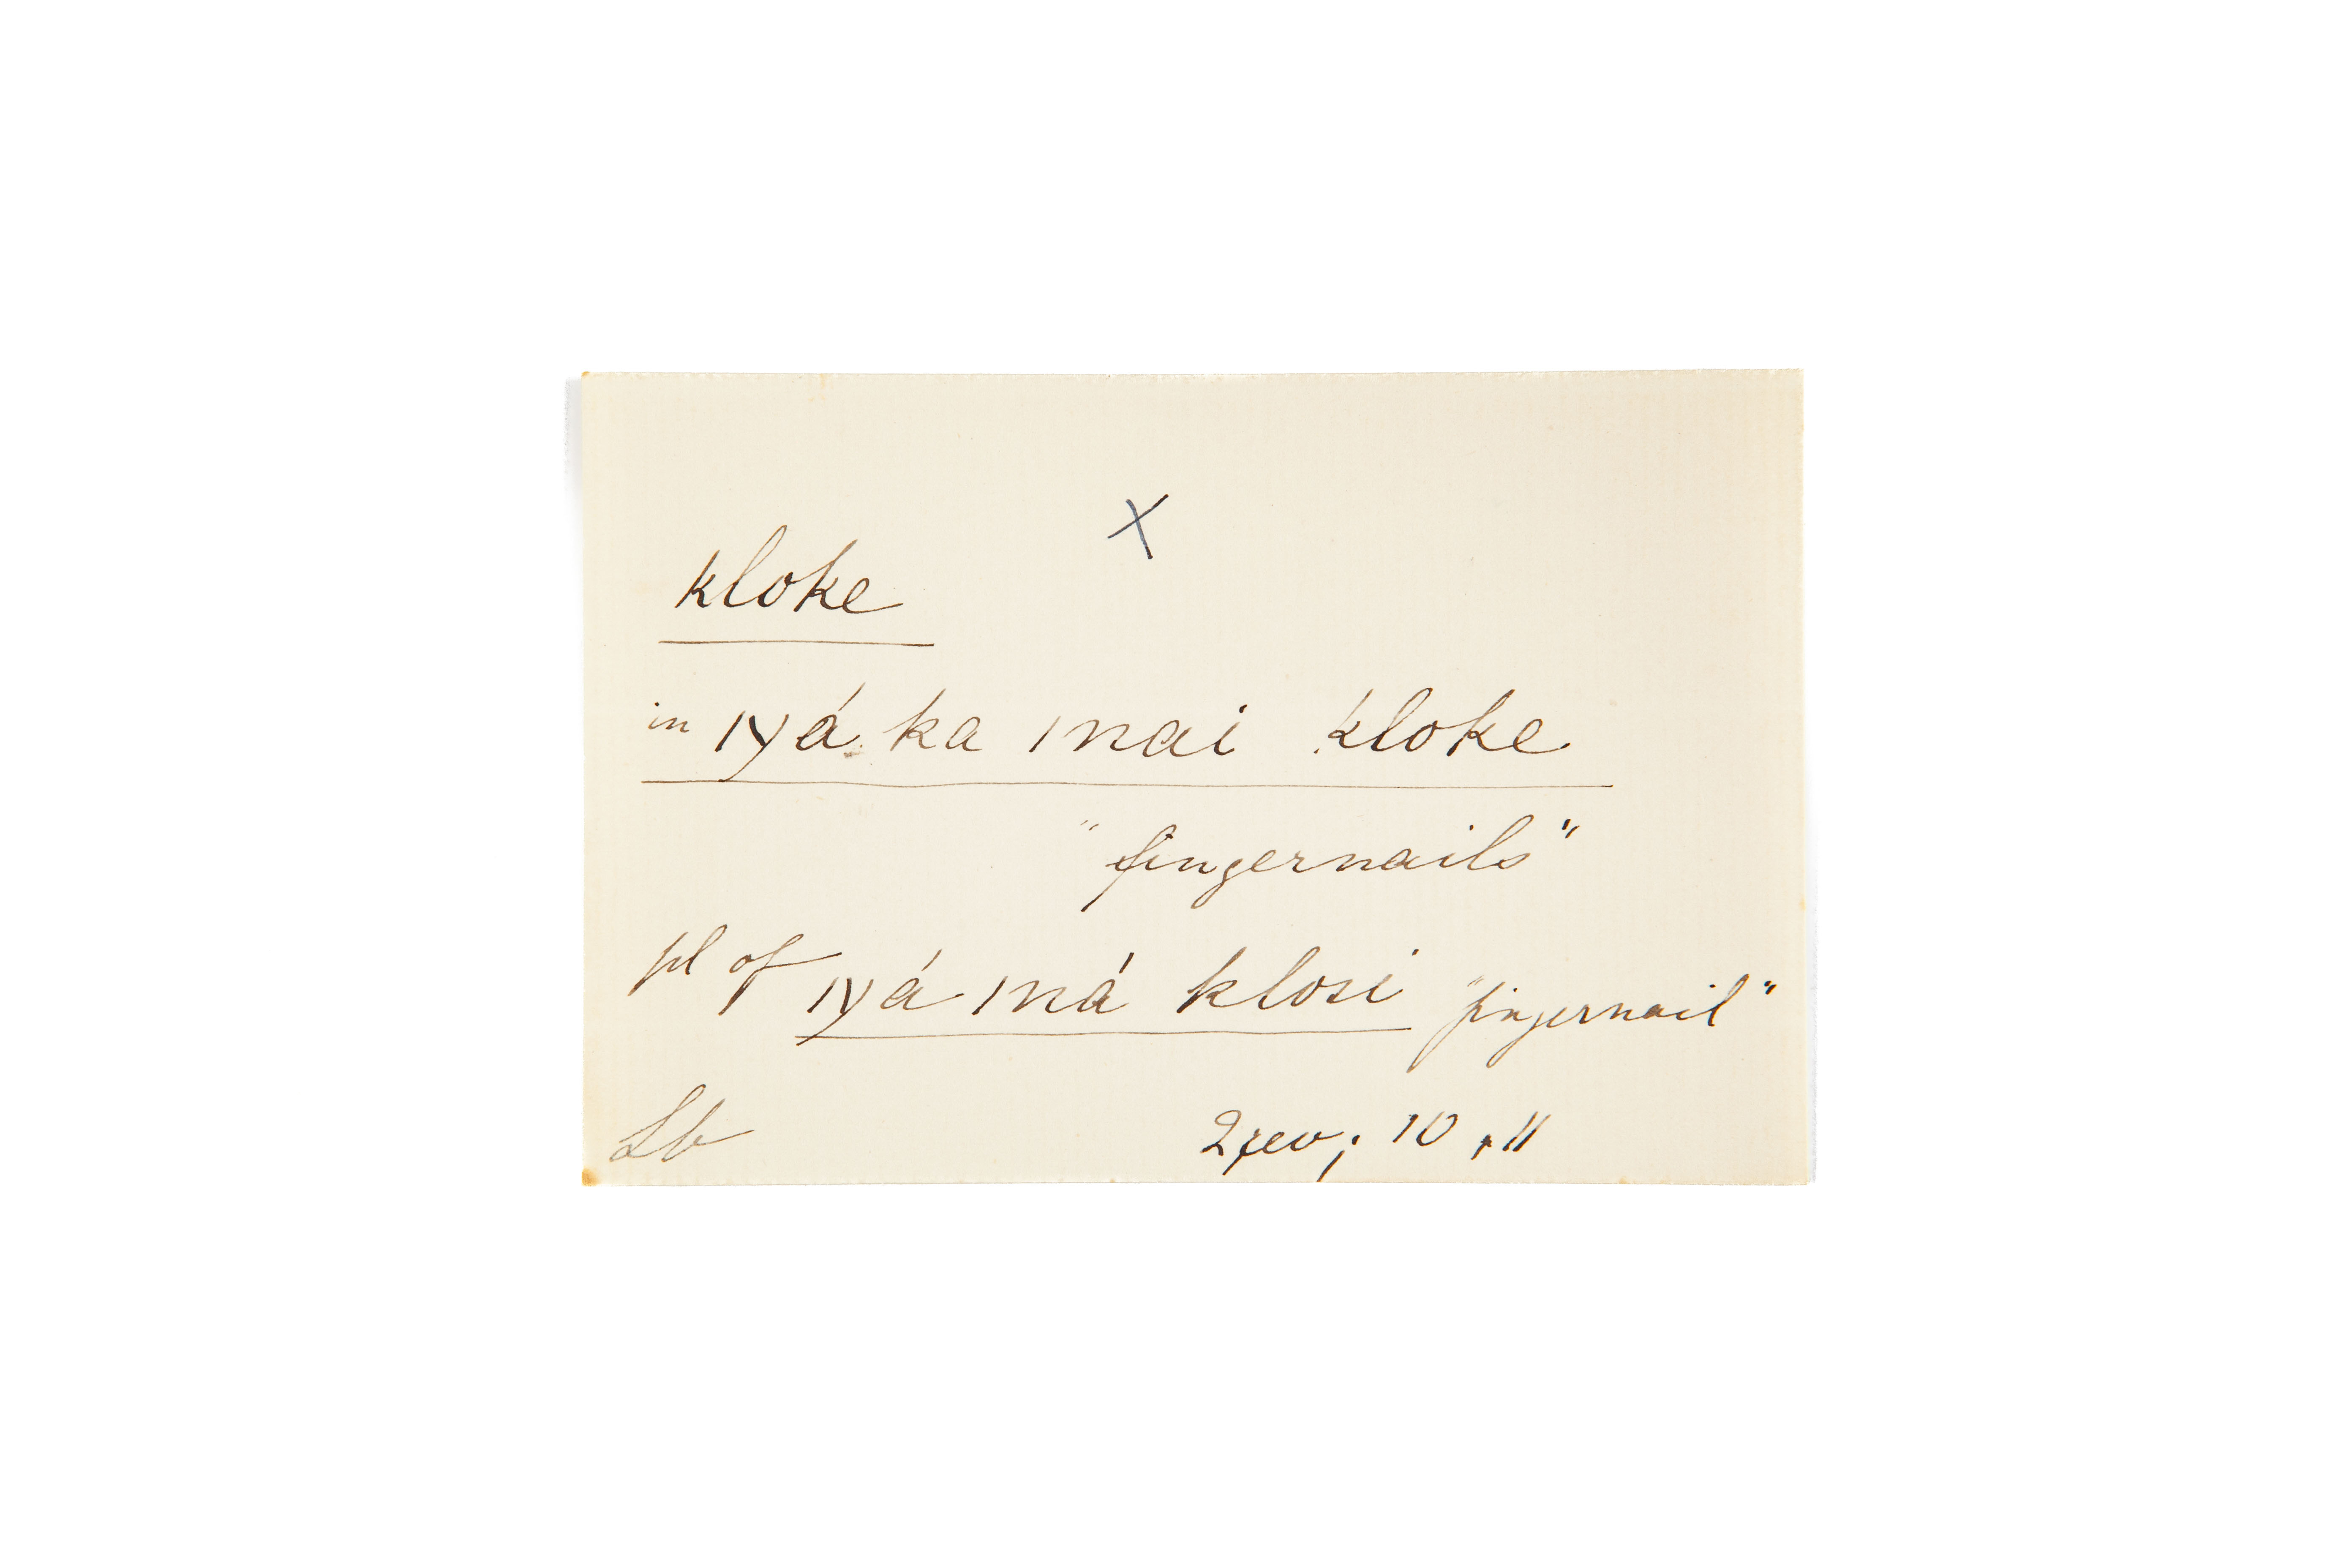 X
kloke
in ıyá ka ınai kloke
"fingernails"
pl of ıyá ıná klosi "fingernail"
Lb 2rev; 10, 11